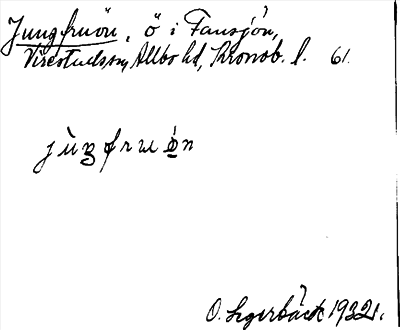 Jungfruön, ö i Fansjön,
Virestad sn, Allbo hd, Kronob. l. 61.
jùngfrueön
O. Segerbäck 1932.